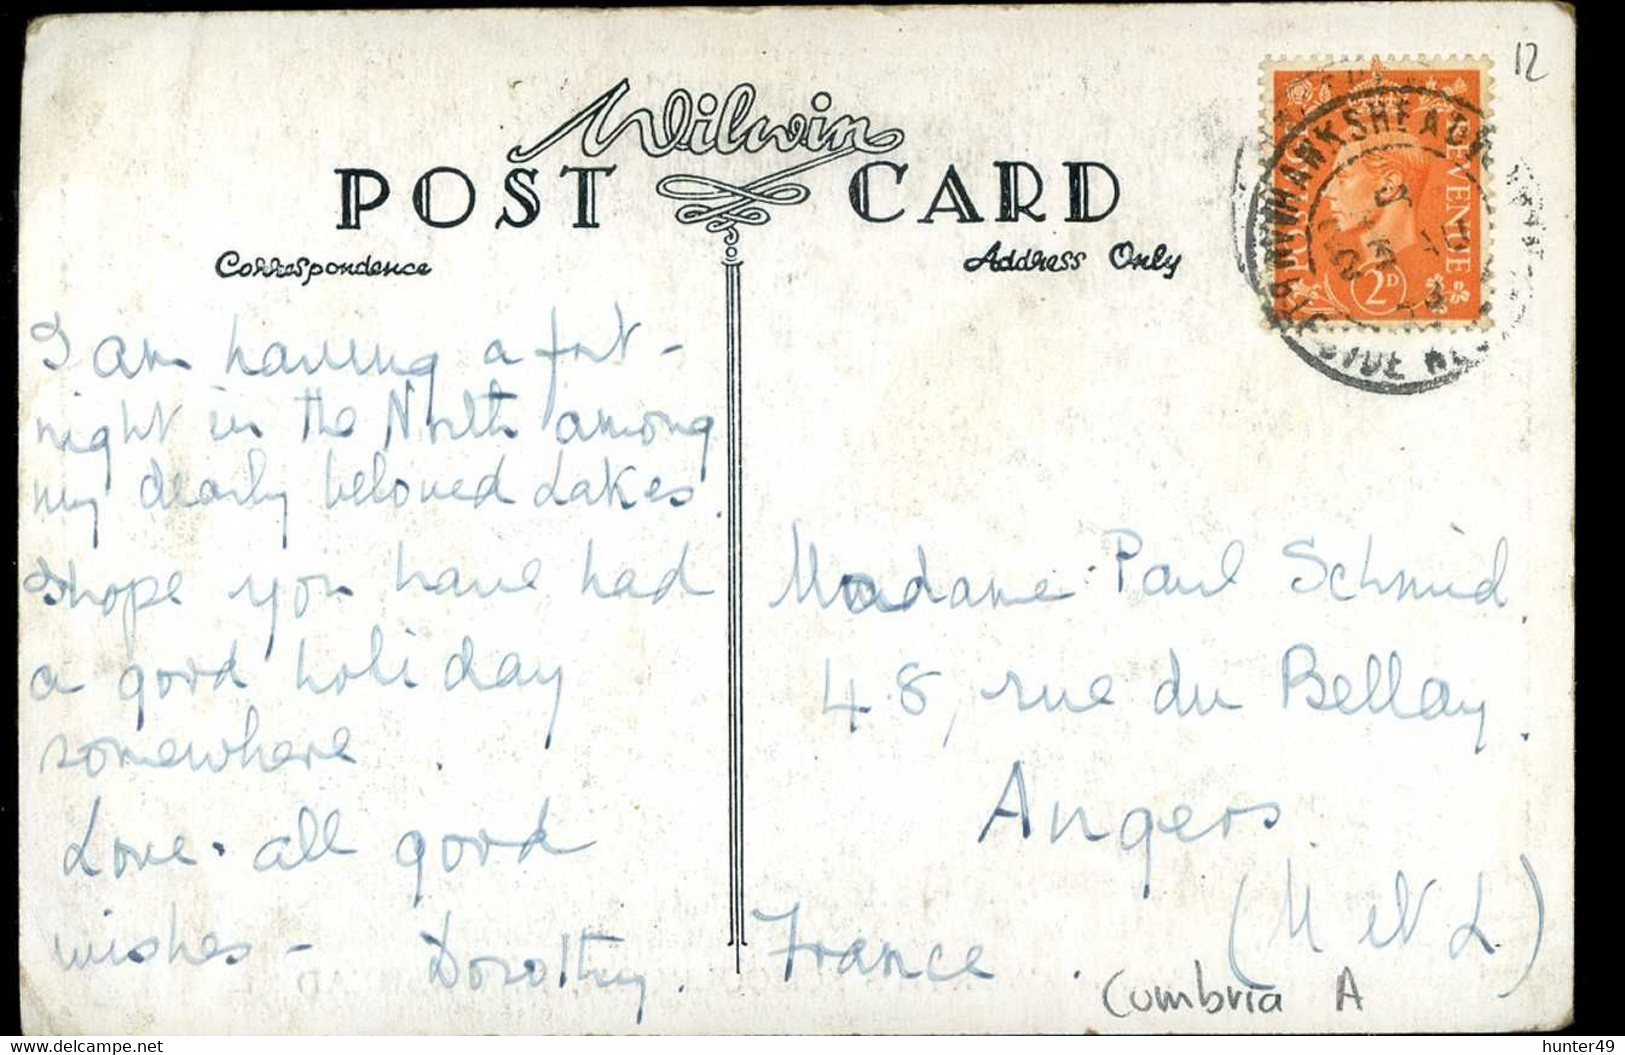 12
Wilwin
POST CARD
Correspondence
Address Only
HAWKSHEAD
POSTAGE REVENUE
2D
I am having a fort-
night in the North among
my dearly beloved Lakes.
I hope you have had
a good holiday
somewhere.
Love. all good
wishes - Dorothy.
Madame Paul Schmid.
48, rue du Bellay.
Angers
(M et L)
France.
Cumbria A
delcampe.net
hunter49